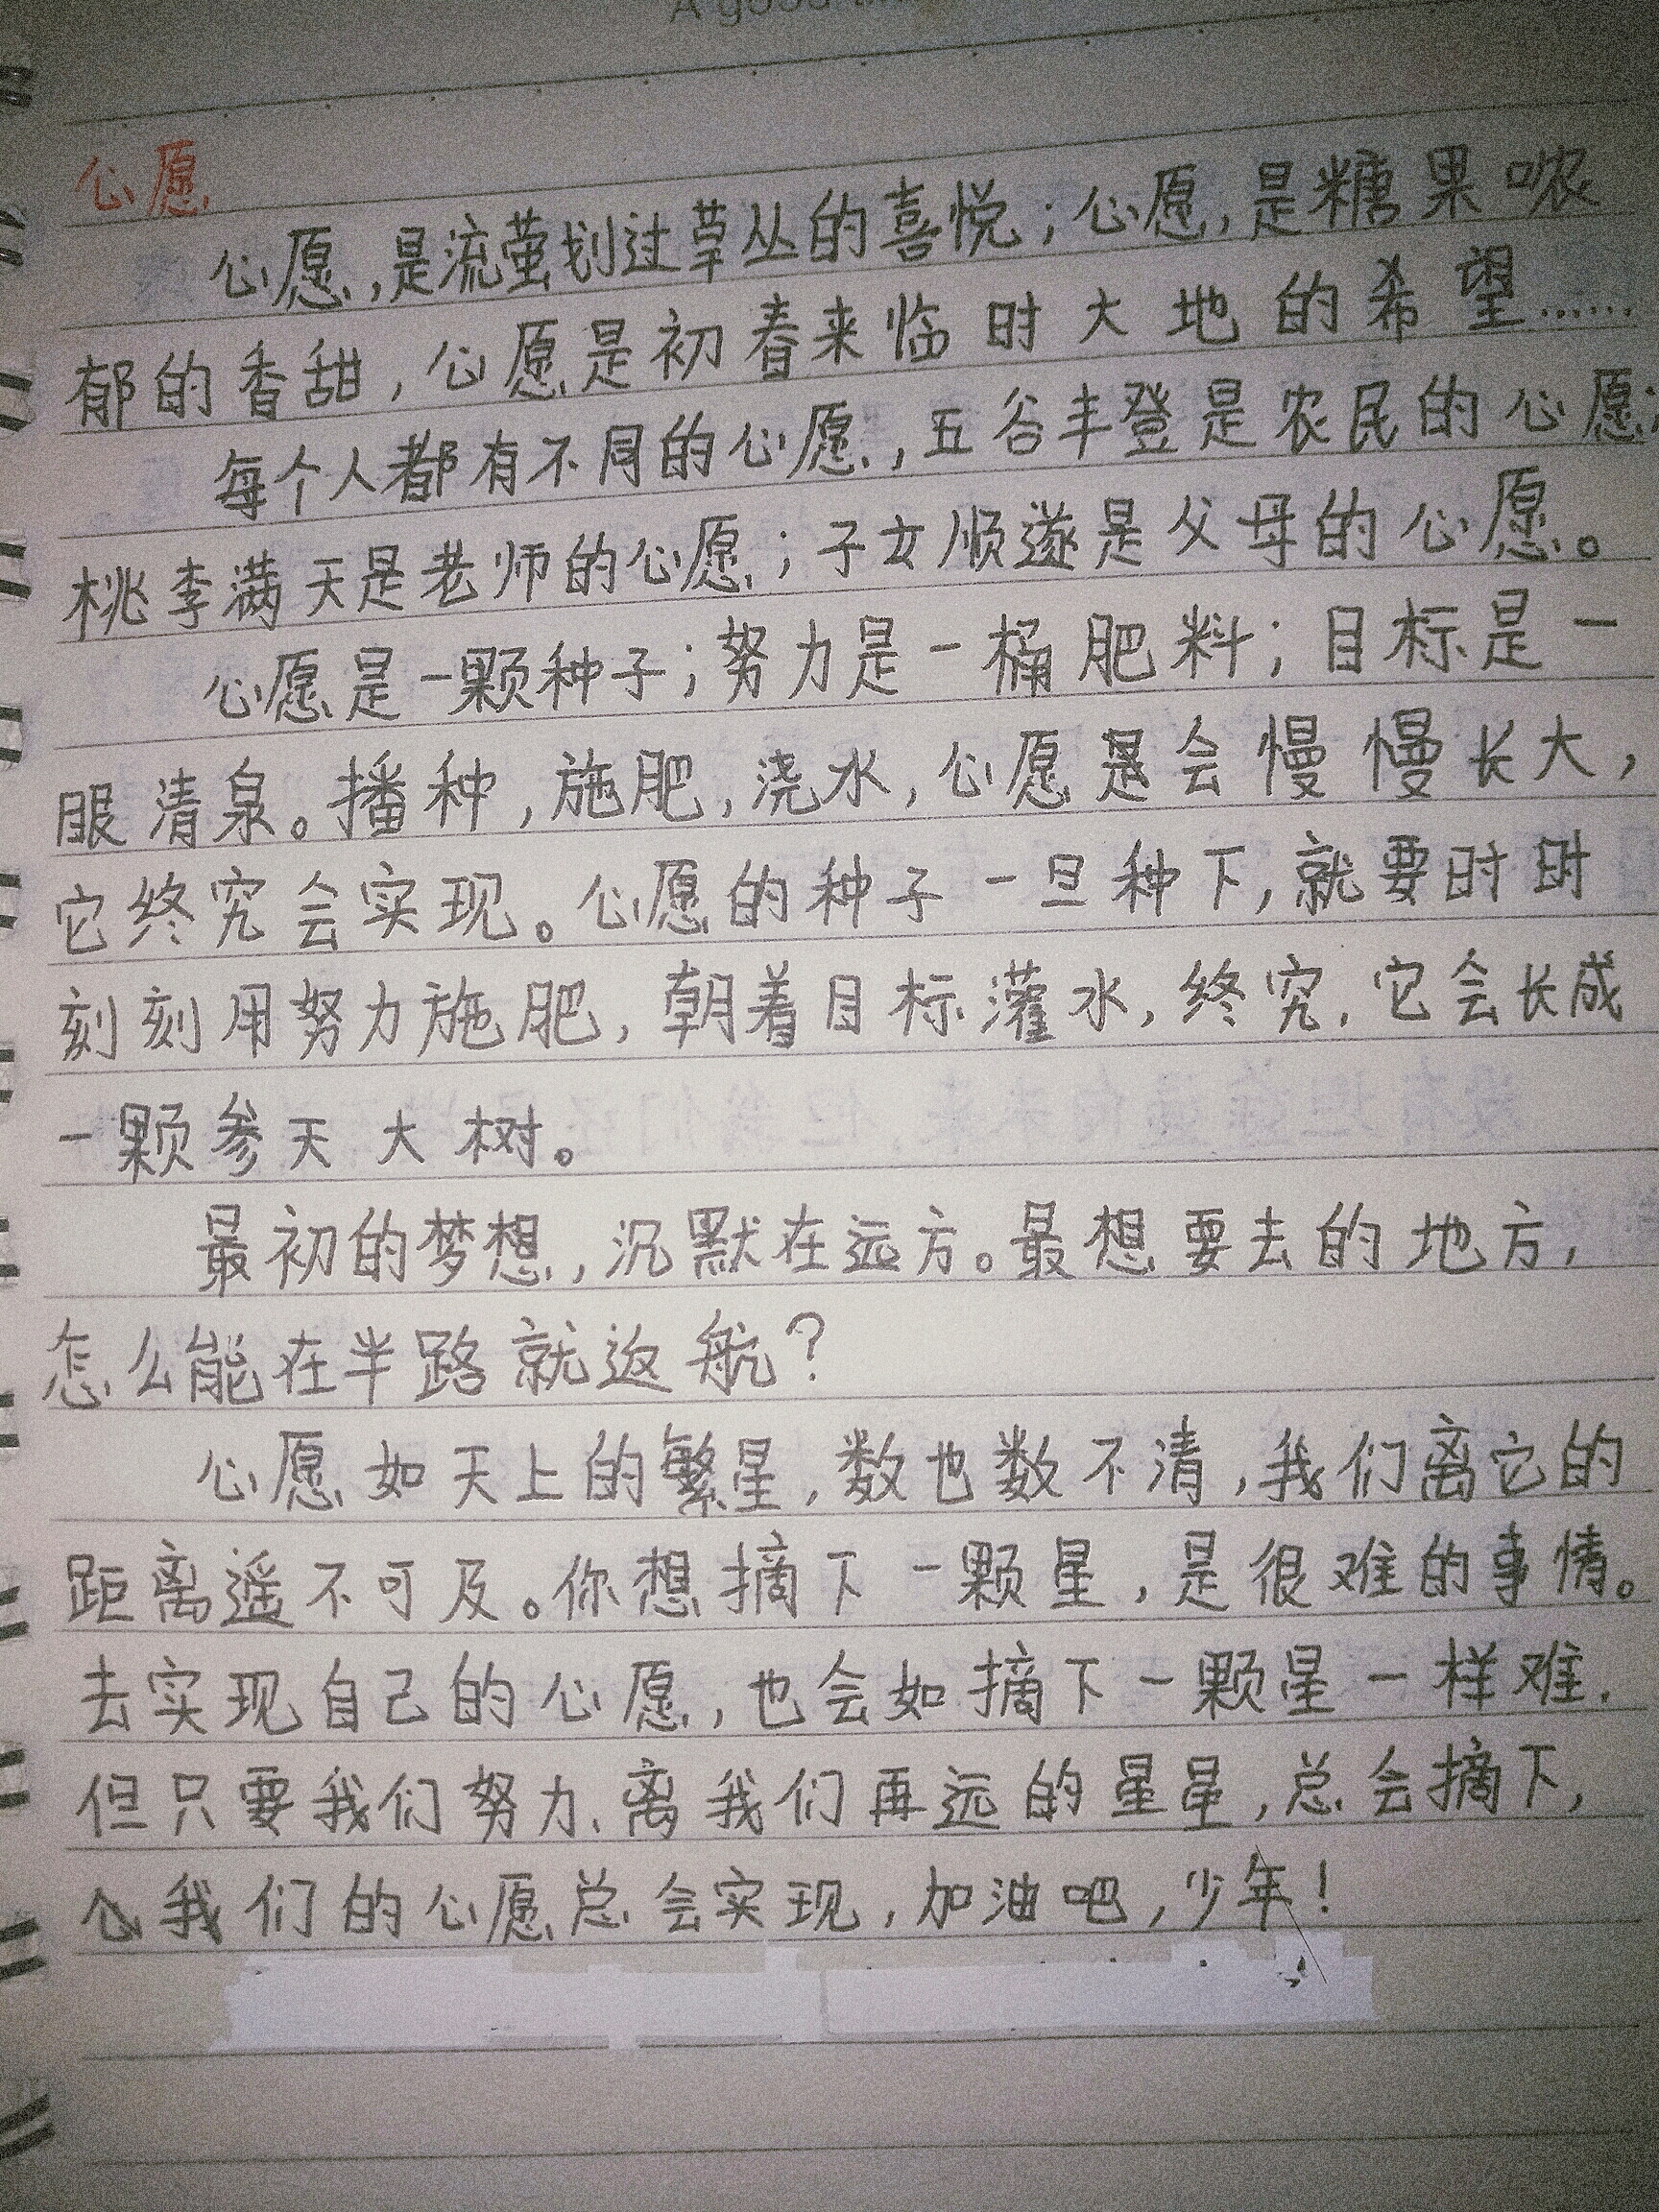 A good
心愿
心愿,是流萤划过草丛的喜悦;心愿,是糖果哝
郁的香甜,心愿是初春来临时大地的希望……
每个人都有不同的心愿,五谷丰登是农民的心愿;
桃李满天是老师的心愿;子女顺遂是父母的心愿。
心愿是一颗种子;努力是一桶肥料;目标是一
眼清泉。播种,施肥,浇水,心愿是会慢慢长大,
它终究会实现。心愿的种子一旦种下,就要时时
刻刻用努力施肥,朝着目标灌水,终究,它会长成
一颗参天大树。
最初的梦想,沉默在远方。最想要去的地方,
怎么能在半路就返航?
心愿如天上的繁星,数也数不清,我们离它的
距离遥不可及。你想摘下一颗星,是很难的事情。
去实现自己的心愿,也会如摘下一颗星一样难,
但只要我们努力、离我们再远的星星,总会摘下,
我们的心愿总会实现,加油吧,少年!